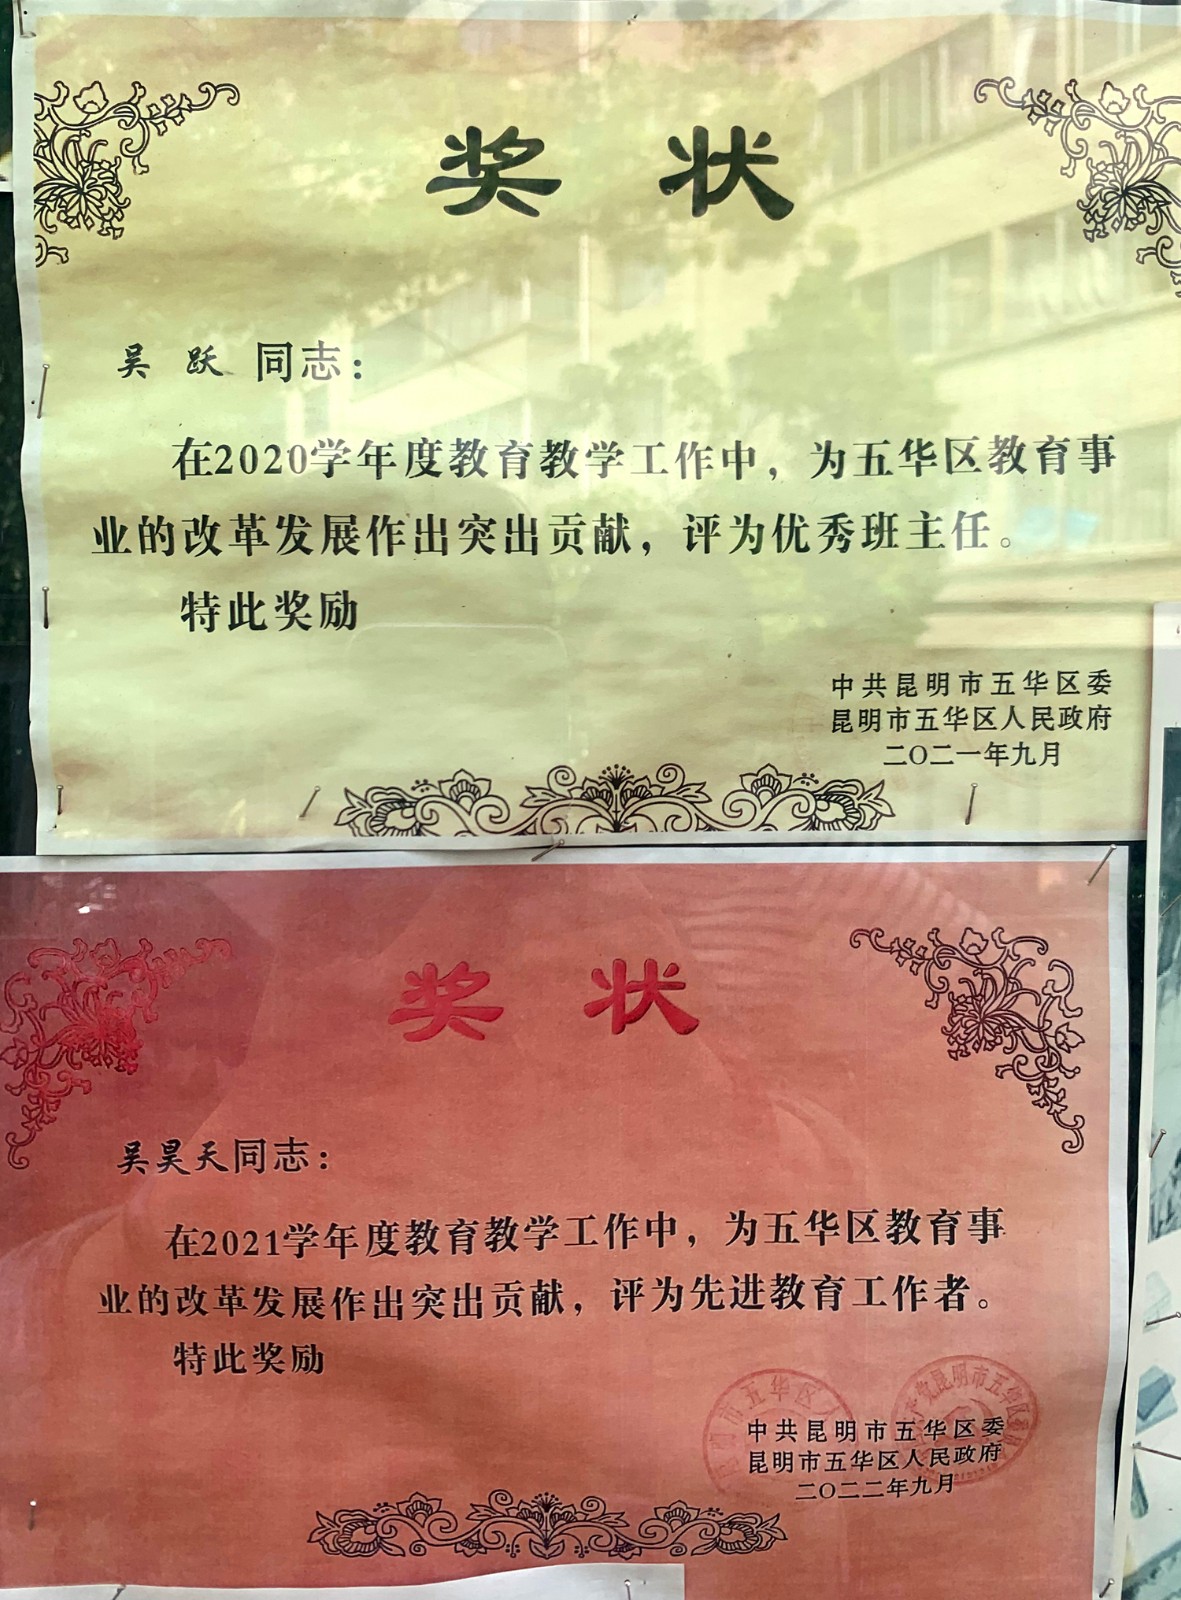 奖 状
吴 跃 同志：
在2020学年度教育教学工作中，为五华区教育事
业的改革发展作出突出贡献，评为优秀班主任。
特此奖励
中共昆明市五华区委
昆明市五华区人民政府
二〇二一年九月
奖 状
吴昊天同志：
在2021学年度教育教学工作中，为五华区教育事
业的改革发展作出突出贡献，评为先进教育工作者。
特此奖励
中共昆明市五华区委
昆明市五华区人民政府
二〇二二年九月